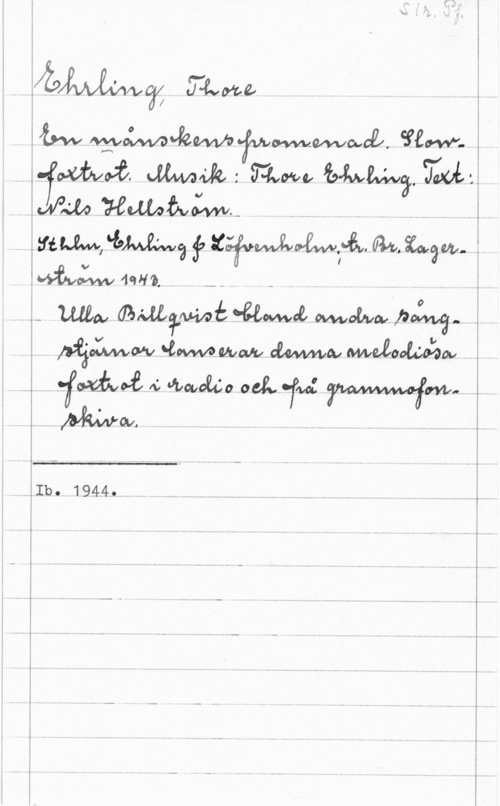 S1r. Pf.
Ehrling, Thore
En månskenspromenad. Slow-
foxtrot. Musik : Thore Ehrling. Text :
Nils Hellström.
Sthlm, Ehrling & Löfvenholm, tr. Br. Lager-
ström 1943.
Ulla Billqvist bland andra sång-
stjärnor lanserar denna melodiösa
foxtrot i radio och på grammofon-
skiva.
Ib. 1944.